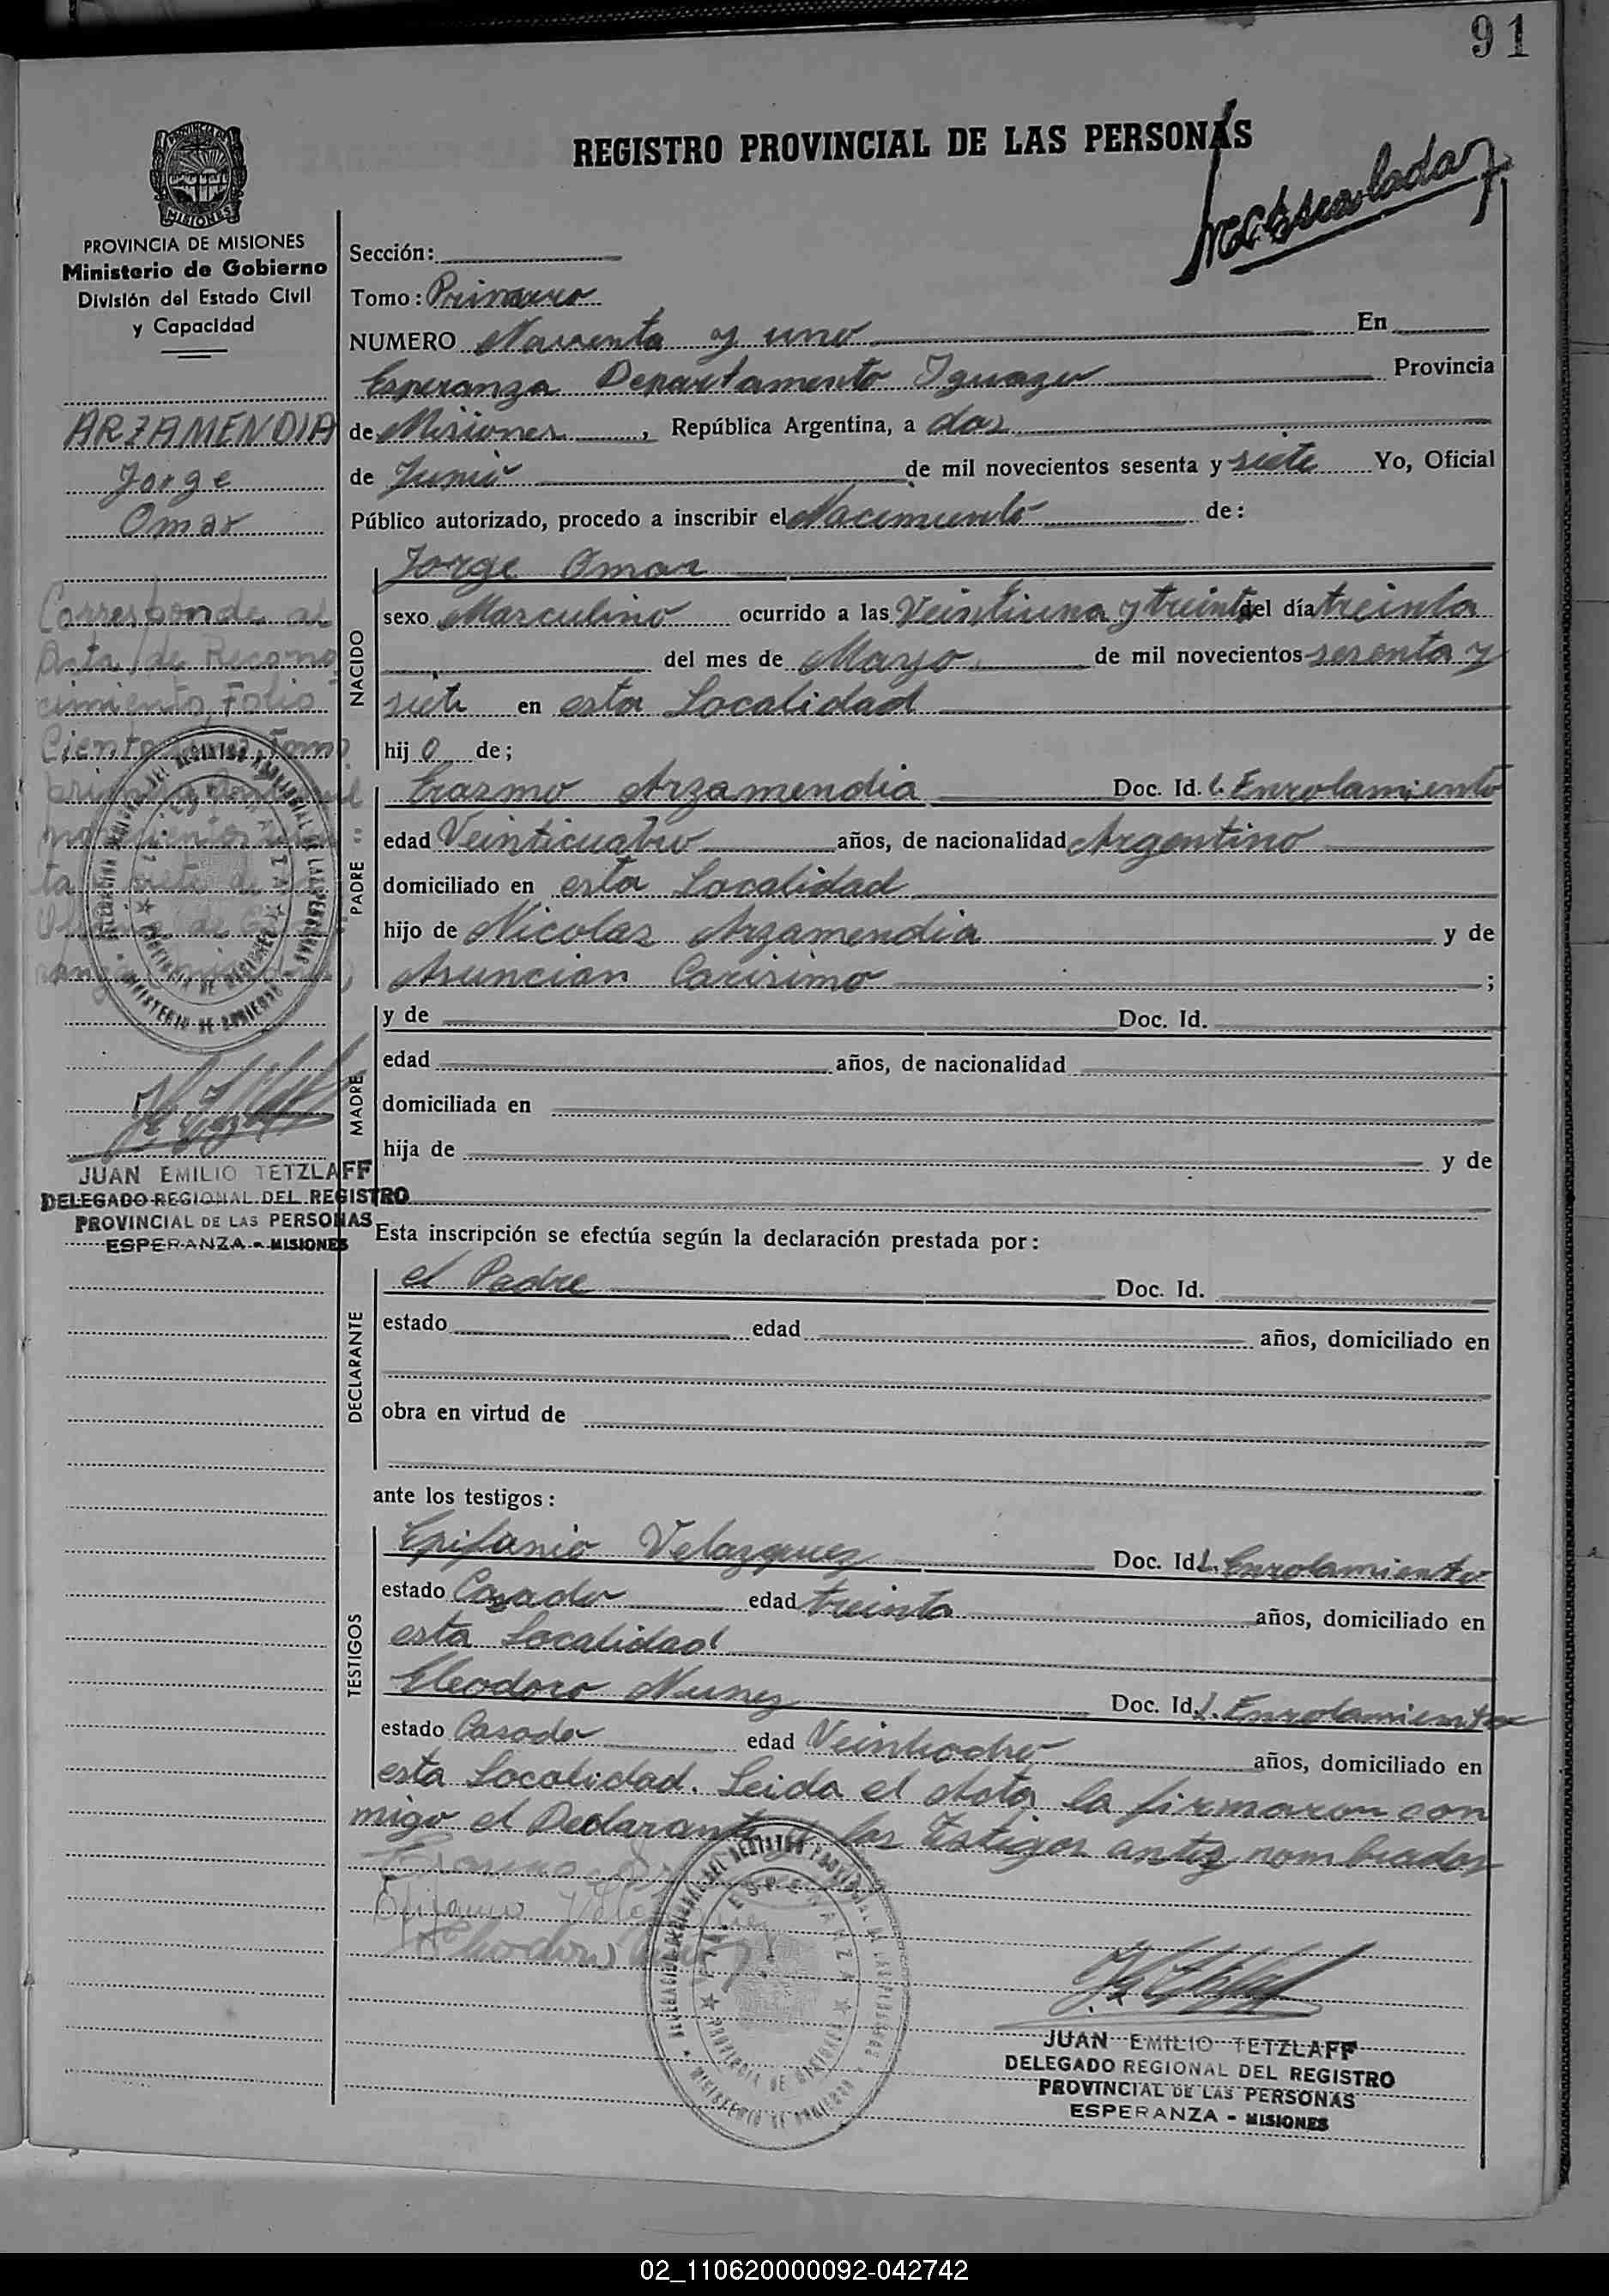 91
REGISTRO PROVINCIAL DE LAS PERSONAS
MISIONES
PROVINCIA DE MISIONES
Ministerio de Gobierno
División del Estado Civil
y Capacidad
ARZAMENDIA
Jorge
Omar
Corresponde al
Acta de Recono
cimiento, Folio
JUAN EMILIO TETZLAFF
DELEGADO REGIONAL DEL REGISTRO
PROVINCIAL DE LAS PERSONAS
ESPERANZA - MISIONES
Sección:
Tomo: Primero
NUMERO Noventa y uno En
Esperanza Departamento Iguazu Provincia
de Misiones, República Argentina, a dos
de Junio de mil novecientos sesenta y siete Yo, Oficial
Público autorizado, procedo a inscribir el Nacimiento de:
NACIDO
Jorge Omar
sexo Masculino ocurrido a las Veintiuna y treinta del día treinta
del mes de Marzo de mil novecientos sesenta y
siete en esta Localidad
hijo de;
PADRE
Erazmo Arzamendia Doc. Id. L. Enrolamiento
edad Veinticuatro años, de nacionalidad Argentino
domiciliado en esta Localidad
hijo de Nicolas Arzamendia y de
Asuncion Carisimo ;
MADRE
y de Doc. Id.
edad años, de nacionalidad
domiciliada en
hija de y de
Esta inscripción se efectúa según la declaración prestada por:
DECLARANTE
el Padre Doc. Id.
estado edad años, domiciliado en
obra en virtud de
ante los testigos:
TESTIGOS
Epifanio Velazquez Doc. Id L. Enrolamiento
estado Casado edad treinta años, domiciliado en
esta Localidad
Eleodoro Nunez Doc. Id. L. Enrolamiento
estado Casado edad Veintiocho años, domiciliado en
esta Localidad. Leida el Acta, la firmaron con
migo el Declarante y los Testigos antes nombrados
JUAN EMILIO TETZLAFF
DELEGADO REGIONAL DEL REGISTRO
PROVINCIAL DE LAS PERSONAS
ESPERANZA - MISIONES
02_110620000092-042742